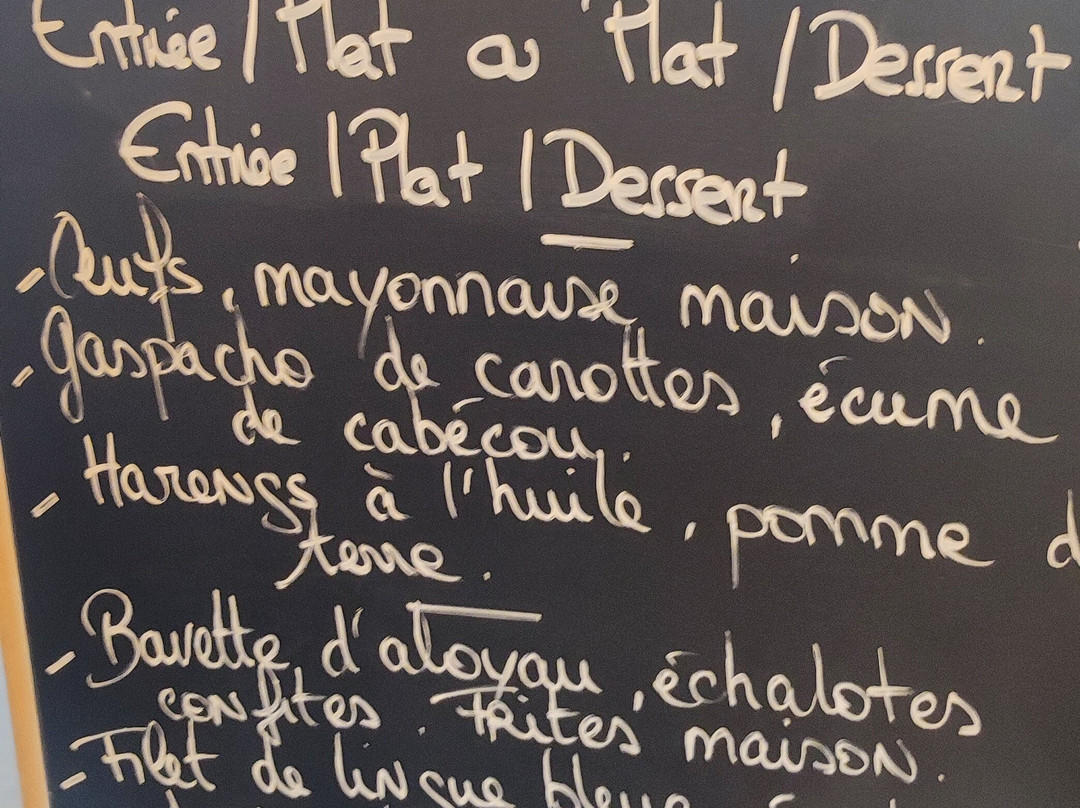 Entrée / Plat ou Plat / Dessent
Entrée / Plat / Dessert
- Œufs, mayonnaise maison.
- gaspacho de carottes, écume
de cabécou.
- Harengs à l'huile, pomme d
terre.
- Bavette d'aloyau, échalotes
confites. Frites maison.
- Filet de lingue bleue